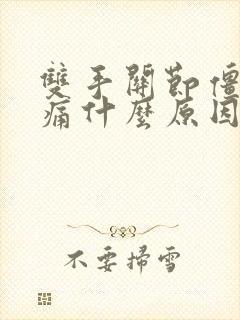 雙手關節僵
痛什麼原因
不要掃雪